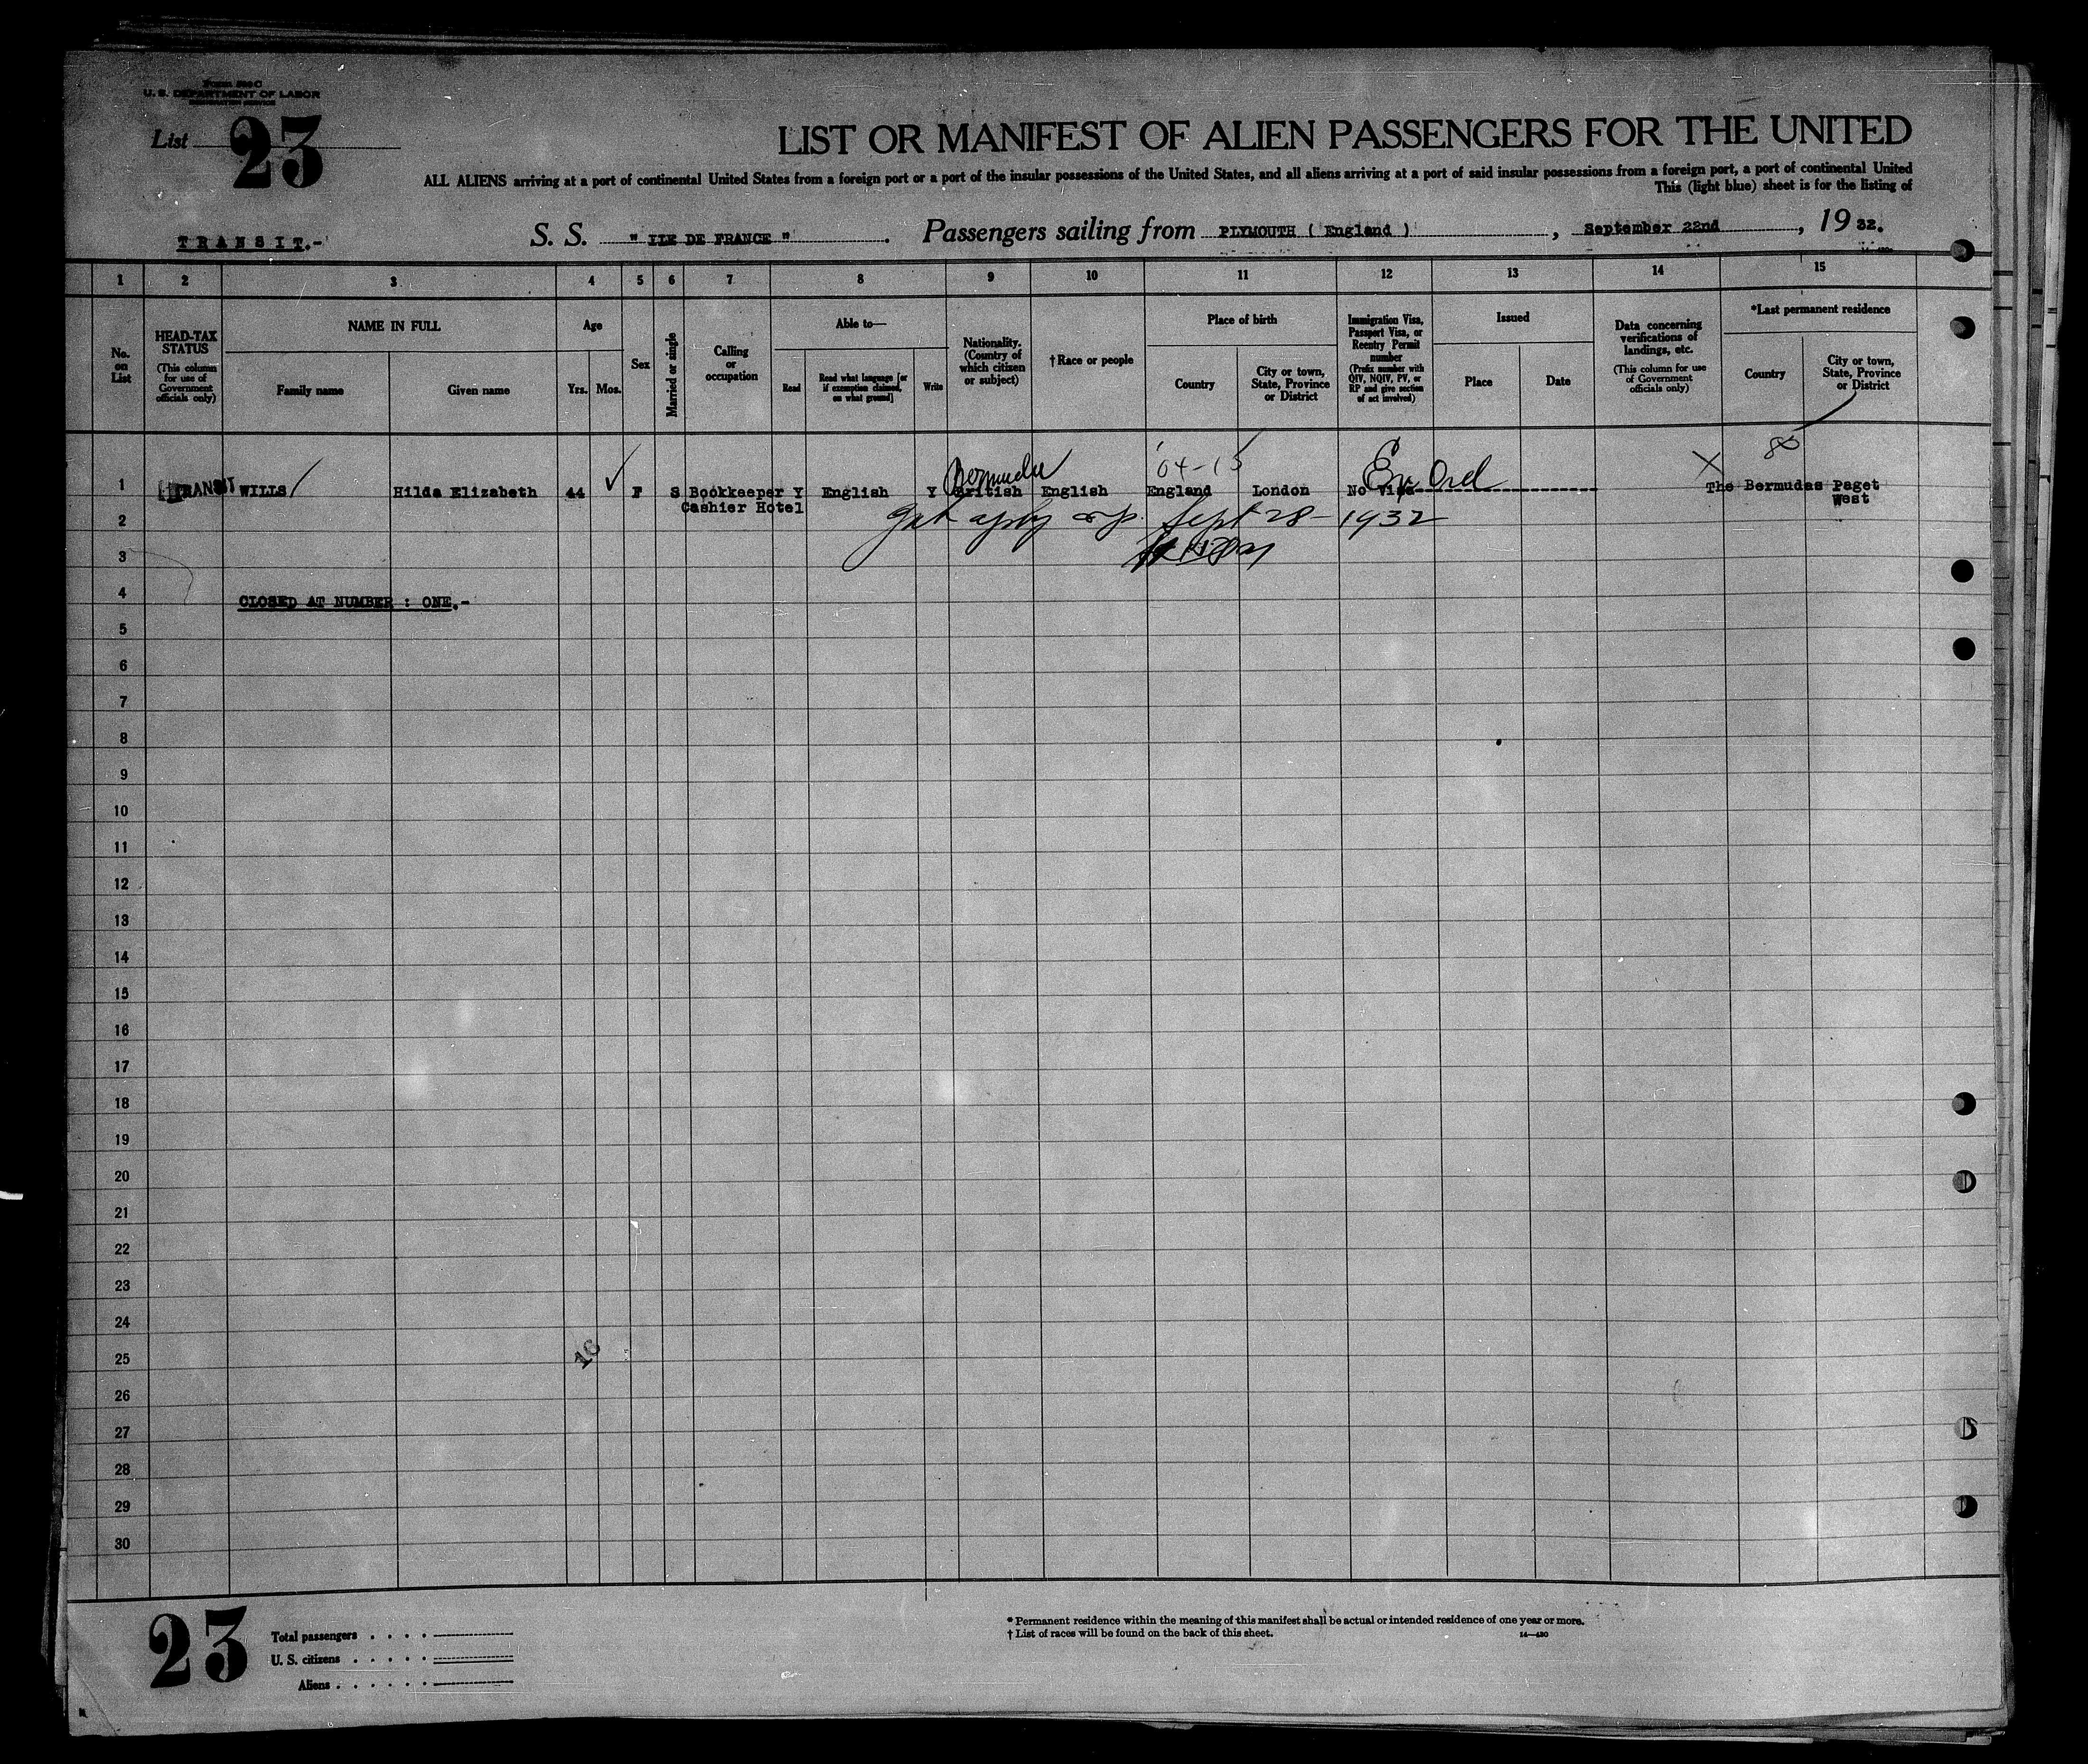 Form 500 C
U. S. DEPARTMENT OF LABOR
IMMIGRATION SERVICE
List 23
LIST OR MANIFEST OF ALIEN PASSENGERS FOR THE UNITED
ALL ALIENS arriving at a port of continental United States from a foreign port or a port of the insular possessions of the United States, and all aliens arriving at a port of said insular possessions from a foreign port, a port of continental United
This (light blue) sheet is for the listing of
TRANSIT.-
S. S. " ILE DE FRANCE ". Passengers sailing from PLYMOUTH ( England ), September 22nd, 19 32.
1 2 3 4 5 6 7 8 9 10 11 12 13 14 15
No. on List
HEAD-TAX STATUS (This column for use of Government officials only)
NAME IN FULL
Family name
Given name
Age
Yrs. Mos.
Sex
Married or single
Calling or occupation
Able to—
Read
Read what language [or if exemption claimed, on what ground]
Write
Nationality. (Country of which citizen or subject)
†Race or people
Place of birth
Country
City or town, State, Province or District
Immigration Visa, Passport Visa, or Reentry Permit number (Prefix number with QIV, NQIV, PV, or RP and give section of act involved)
Issued
Place
Date
Data concerning verifications of landings, etc. (This column for use of Government officials only)
*Last permanent residence
Country
City or town, State, Province or District
Bermuda 04-15 80
1 TRANSIT WILLS Hilda Elizabeth 44 F S Bookkeeper Y English Y British English England London No Visa The Bermudas Paget
Cashier Hotel West
2 Sept 28-1932
3
4
CLOSED AT NUMBER : ONE.-
5
6
7
8
9
10
11
12
13
14
15
16
17
18
19
20
21
22
23
24
25
16
26
27
28
29
30
23
Total passengers
U. S. citizens
Aliens
* Permanent residence within the meaning of this manifest shall be actual or intended residence of one year or more.
† List of races will be found on the back of this sheet.
14—430